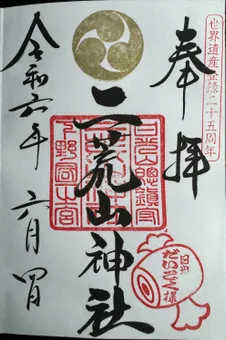 世界遺産登録二十五周年
奉拝
二荒山神社
日光
だいこく様
令和六年
六月四日